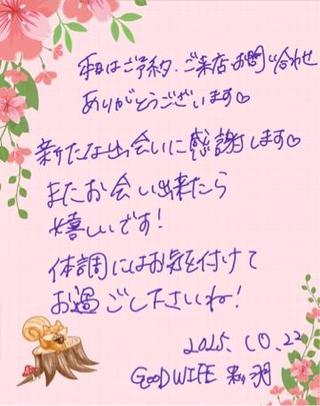 本日はご予約、ご来店お問い合わせ
ありがとうございます♡
新たな出会いに感謝します♡
またお会い出来たら
嬉しいです！
体調にはお気を付けて
お過ごし下さいね！
2025.10.22
GOODWIFE